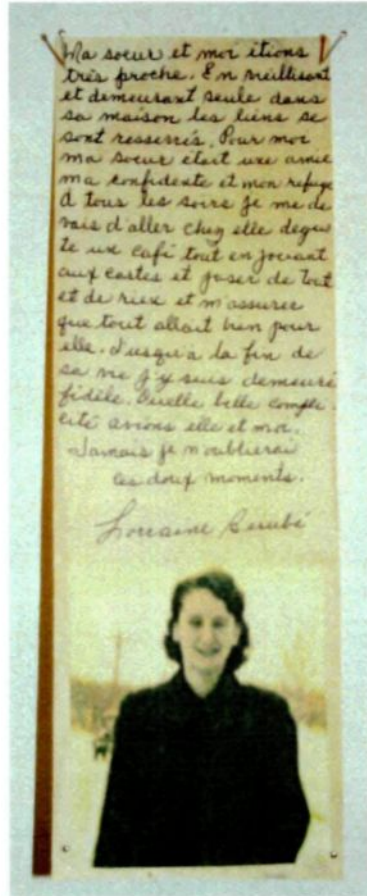 Ma soeur et moi étions
très proche. En vieillisant
et demeurant seule dans
sa maison les liens se
sont resserrés. Pour moi
ma soeur était une amie
ma confidente et mon refuge
à tous les soirs je me de
vais d'aller chez elle degus
te un café tout en jouant
aux cartes et jaser de tout
et de rien et m'assurer
que tout allait bien pour
elle. Jusqu'à la fin de
sa vie j'y suis demeuré
fidèle. Quelle belle compli
cité avions elle et moi.
Jamais je n'oublierai
ces doux moments.
Lorraine Bérubé